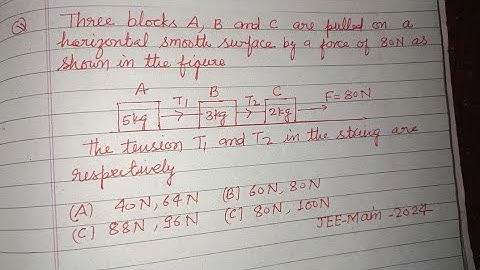 Q Three blocks A, B and C are pulled on a
horizontal smooth surface by a force of 80N as
shown in the figure
A B C
5kg T1 3kg T2 2kg F=80N
The tension T1 and T2 in the string are
respectively
(A) 40N, 64N (B) 60N, 80N
(C) 88N, 96N (C) 80N, 100N
JEE-Main-2024